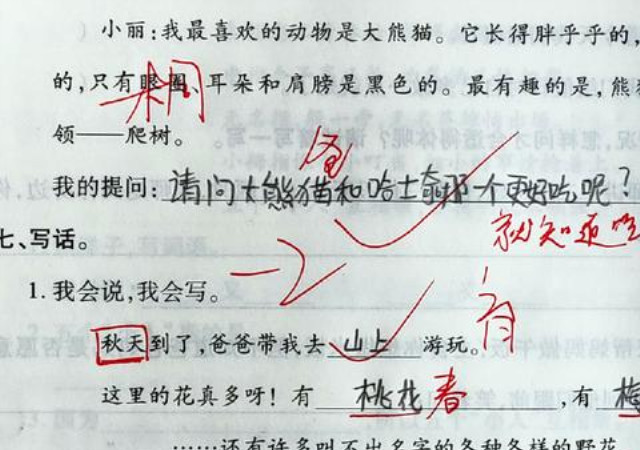 小丽:我最喜欢的动物是大熊猫。它长得胖乎乎的,
的,只有眼圈、耳朵和肩膀是黑色的。最有趣的是,熊
领——爬树。
我的提问:请问大熊猫和哈士奇那一个更好吃呢?
就知道吃
七、写话。
-2
1.我会说,我会写。
秋天到了,爸爸带我去 山上 游玩。
这里的花真多呀!有 桃花 春 ,有
……还有许多叫不出名字的各种各样的野花